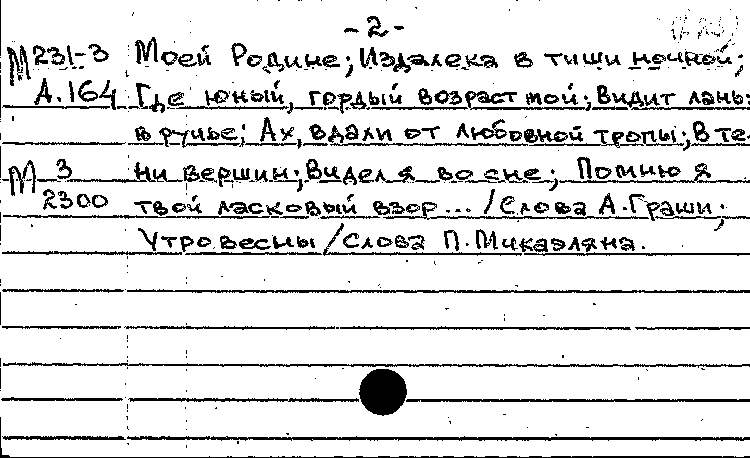 -2-
М 231-3 Моей Родине; Издалека в тиши ночной;
А.164 Где юный, гордый возраст мой; Видит лань:
в ручье; Ах, вдали от любовной тропы; В те-
М 3 ни вершин; Видел я во сне; Помню я
2300 твой ласковый взор... /Слова А.Граши;
Утро весны /Слова П.Микаэляна.